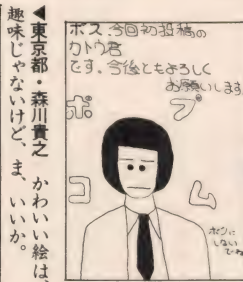 ボス、今回初投稿の
カトウ君
です。今後ともよろしく
お願いします
ポ プ
コ ム
ボクに
しない
でね
◀東京都・森川貴之 かわいい絵は、
趣味じゃないけど、ま、いいか。